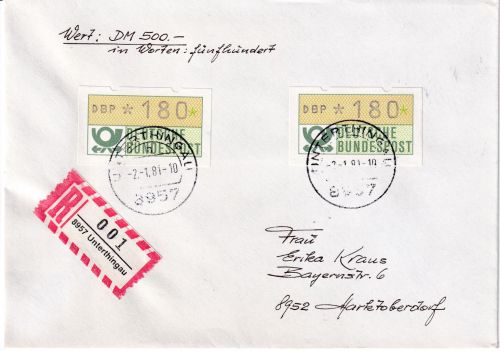 Wert: DM 500.-
in Worten: fünfhundert
DBP * 180*
DEUTSCHE
BUNDESPOST
DBP * 180*
DEUTSCHE
BUNDESPOST
UNTERTHINGAU
-2.-1.81-10
8957
UNTERTHINGAU
-2.-1.81-10
8957
R
001
8957 Unterthingau
Frau
Erika Kraus
Bayernstr. 6
8952 Marktoberdorf